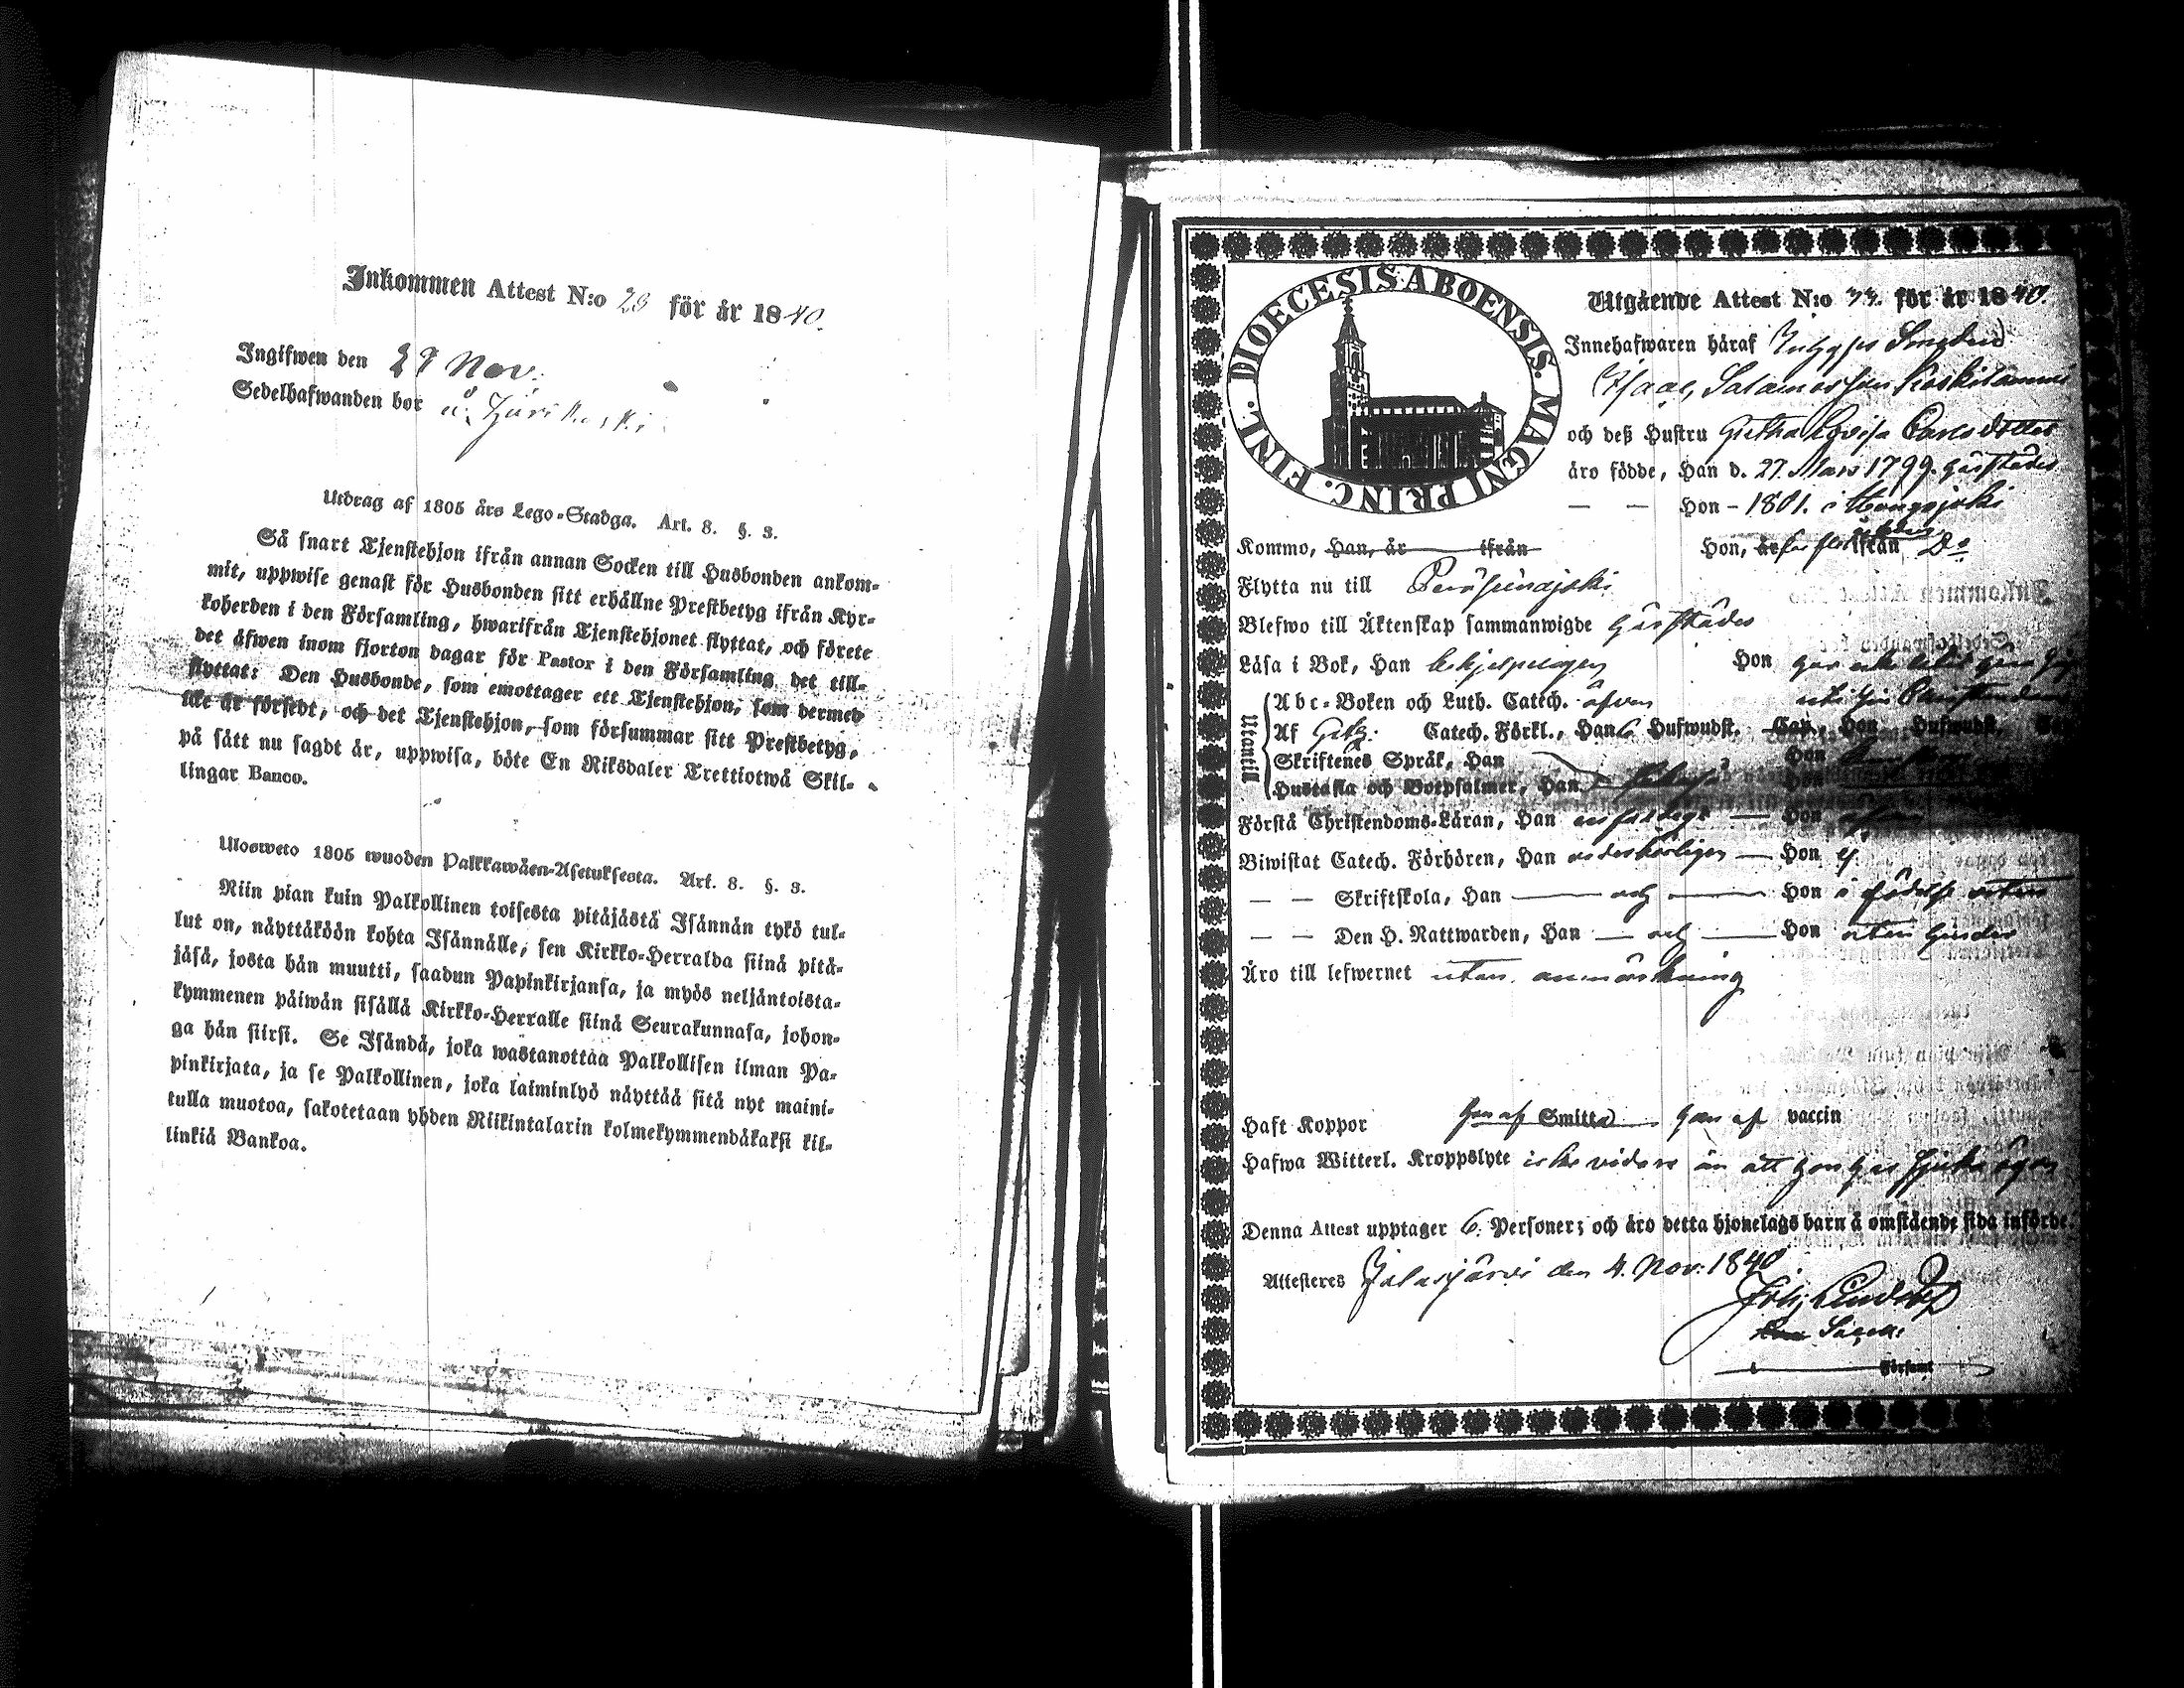 Inkommen Attest N:o 28 för år 1840.
Ingifwen den 29 Nov.
Sedelhafwanden bor å
Utdrag af 1805 års Lego-Stadga. Art. 8. §. 3.
Så snart Tjenstehjon ifrån annan Socken till Husbonden ankom-
mit, uppwise genast för Husbonden sitt erhållne Prestbetyg ifrån Kyr-
koherden i den Församling, hwarifrån Tjenstehjonet flyttat, och förete
det äfwen inom fjorton dagar för Pastor i den Församling det till-
flyttat: Den Husbonde, som emottager ett Tjenstehjon, som dermed
icke är försedt, och det Tjenstehjon, som försummar sitt Prestbetyg,
på sätt nu sagdt är, uppwisa, böte En Riksdaler Trettiotwå Skil-
lingar Banco.
Ulosweto 1805 wuoden Palkkawäen-Asetuksesta. Art. 8. §. 3.
Niin pian kuin Palkollinen toisesta pitäjästä Isännän tykö tul-
lut on, näyttäköön kohta Isännälle, sen Kirkko-Herralda siinä pitä-
jäsä, josta hän muutti, saadun Papinkirjansa, ja myös neljäntoista-
kymmenen päiwän sisällä Kirkko-Herralle siinä Seurakunnasa, johon-
ga hän siirsi. Se Isändä, joka wastanottaa Palkollisen ilman Pa-
pinkirjata, ja se Palkollinen, joka laiminlyö näyttää sitä nyt maini-
tulla muotoa, sakotetaan yhden Riikintalarin kolmekymmendäkaksi kil-
linkiä Bankoa.
DIOECESIS ABOENSIS. MAGNI PRINC. FINL.
Utgående Attest N:o för år 1840.
Innehafwaren häraf Smeden
Isaac Salamonsson Koskilammi
och deß Hustru Gretha Lovisa Carlsdotter
äro födde, Han d. 27. Mars 1799. härstädes
— — Hon - 1801. i
Kommo, Han, är ifrån Hon, är ifrån Do
Flytta nu till Peräseinäjoki
Blefwo till Äktenskap sammanwigde härstädes
Läsa i Bok, Han Hon
Utantill
Abc-Boken och Luth. Catech. äfven
Af Catech. Förkl., Han 6 Hufwudst. Cap. Hon Hufwudst.
Skriftenes Språk, Han Hon
Hustafla och Botpsalmer, Han Hon
Förstå Christendoms-Läran, Han — Hon
Biwistat Catech. Förhören, Han — Hon
— — Skriftskola, Han — och — Hon
— — Den H. Nattwarden, Han — och — Hon utan hinder
Äro till lefwernet utan anmärkning
Haft Koppor han af Smitta hon af vaccin
Hafwa Witterl. Kroppslyte icke vidare än att hon har sjuka ögon
Denna Attest upptager 6. Personer; och äro detta hjonelags barn å omstående sida införde.
Attesteres Jalasjärvi den 4. Nov: 1840
Församl